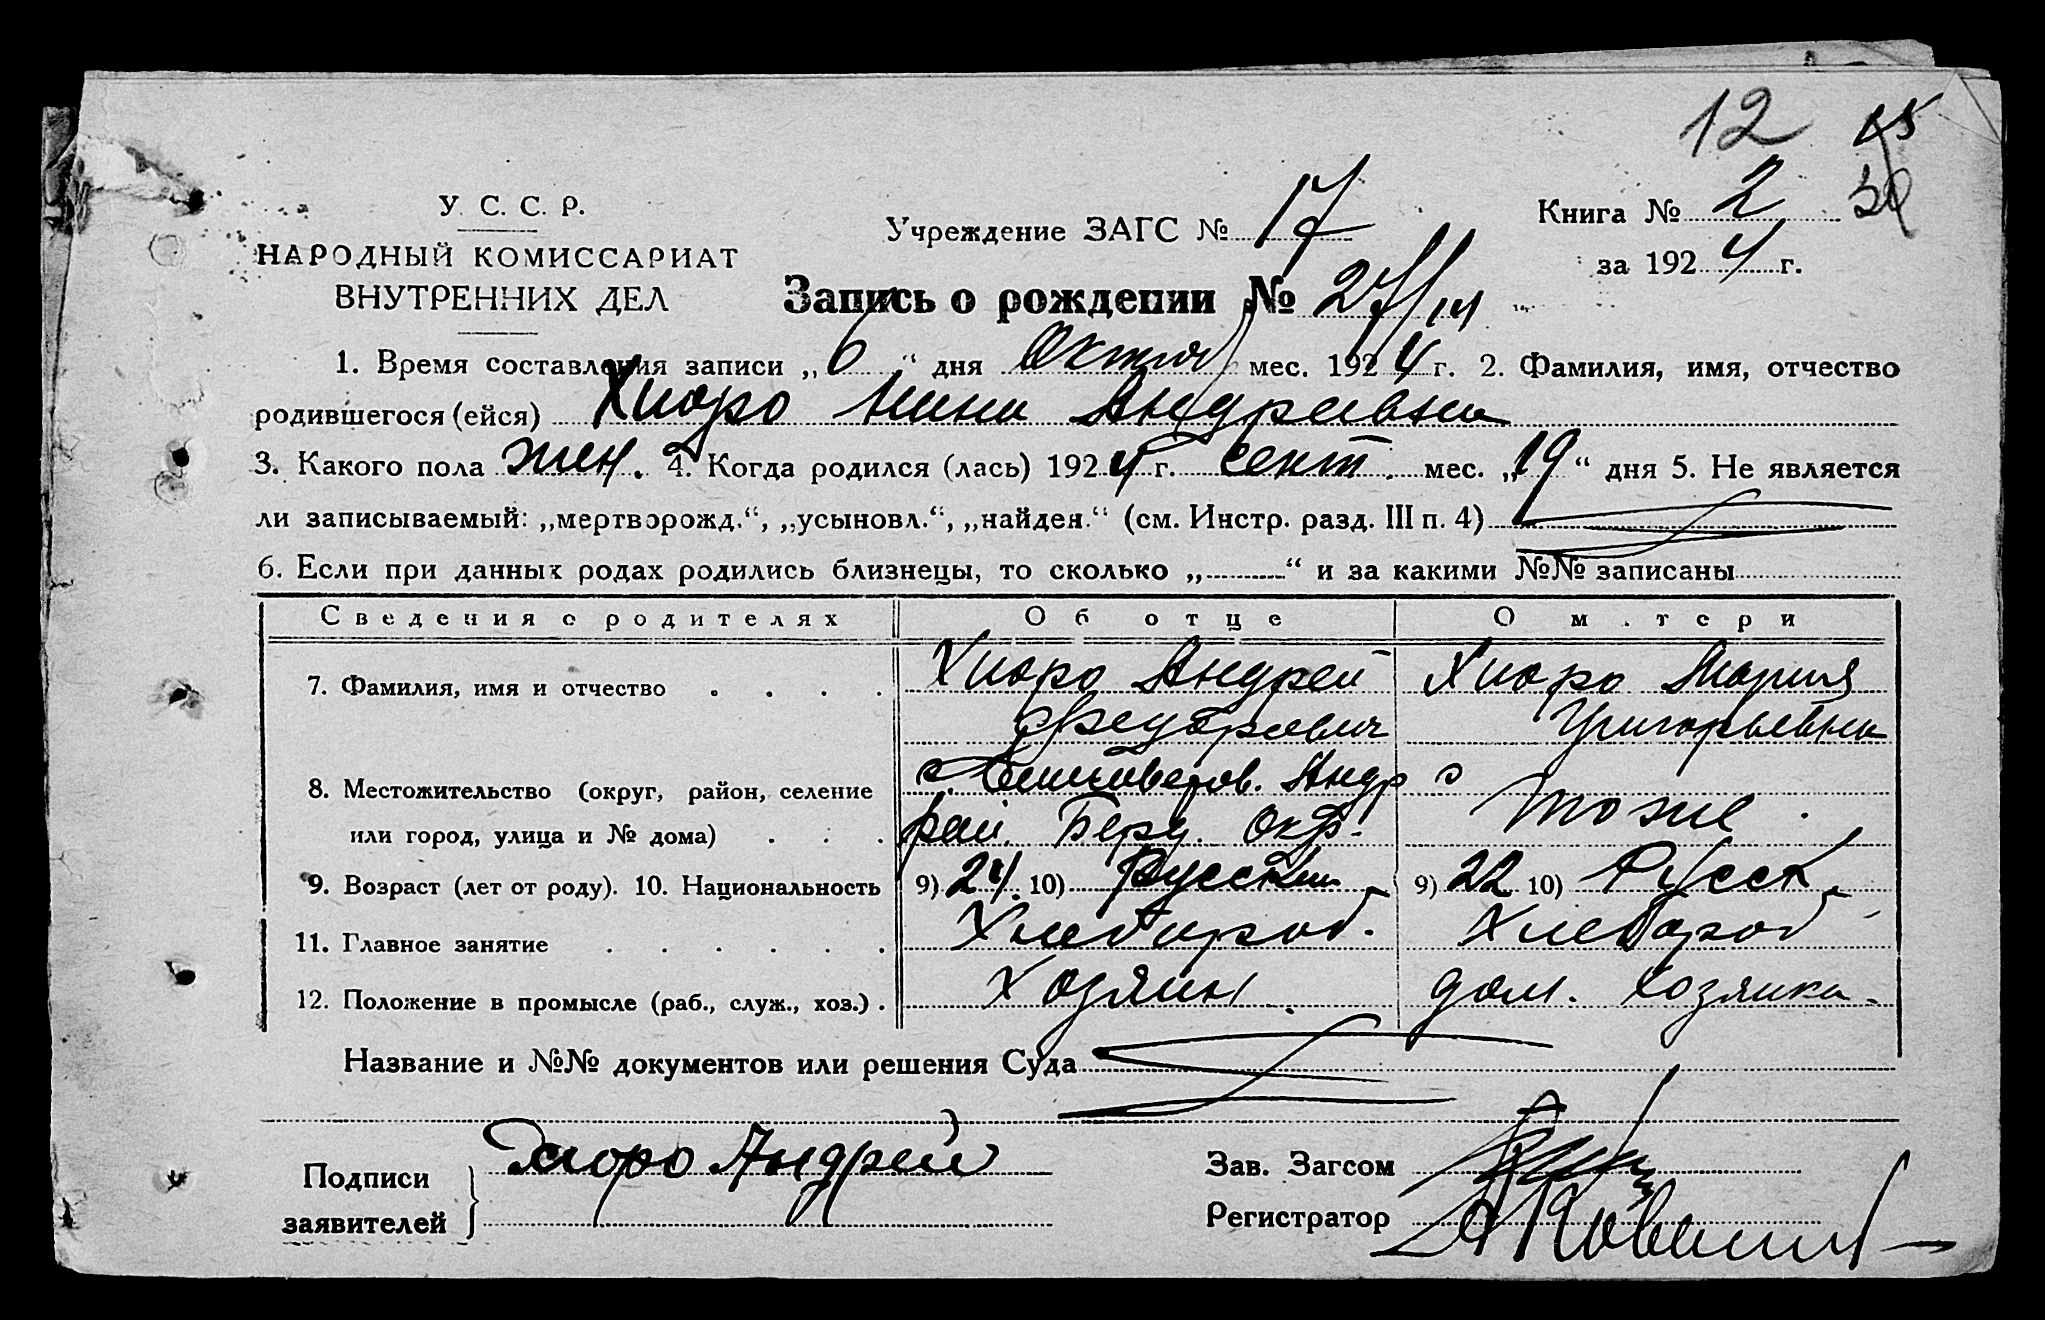 12 15
Книга № 2 30
У. С. С. Р.
Учреждение ЗАГС № 17
за 1924 г.
НАРОДНЫЙ КОМИССАРИАТ
ВНУТРЕННИХ ДЕЛ
Запись о рождении № 27/14
1. Время составления записи „6“ дня Октяб мес. 1924 г. 2. Фамилия, имя, отчество
родившегося (ейся) Хиоро Нина Андреевна
3. Какого пола жен. 4. Когда родился (лась) 1924 г. сент. мес. „19“ дня 5. Не является
ли записываемый: „мертворожд.“, „усыновл.“, „найден.“ (см. Инстр. разд. III п. 4)
6. Если при данных родах родились близнецы, то сколько „“ и за какими №№ записаны
Сведения о родителях Об отце О матери
7. Фамилия, имя и отчество Хиоро Андрей Хиоро Мария
Федорович Григорьевна
8. Местожительство (округ, район, селение Андр
или город, улица и № дома) рай. Берд. Окр. тоже
9. Возраст (лет от роду). 10. Национальность 9) 24 10) Русский 9) 22 10) Русск.
11. Главное занятие Хлебороб. Хлебороб
12. Положение в промысле (раб., служ., хоз.) Хозяин дом. хозяйка
Название и №№ документов или решения Суда
Подписи Хиоро Андрей Зав. Загсом
заявителей Регистратор